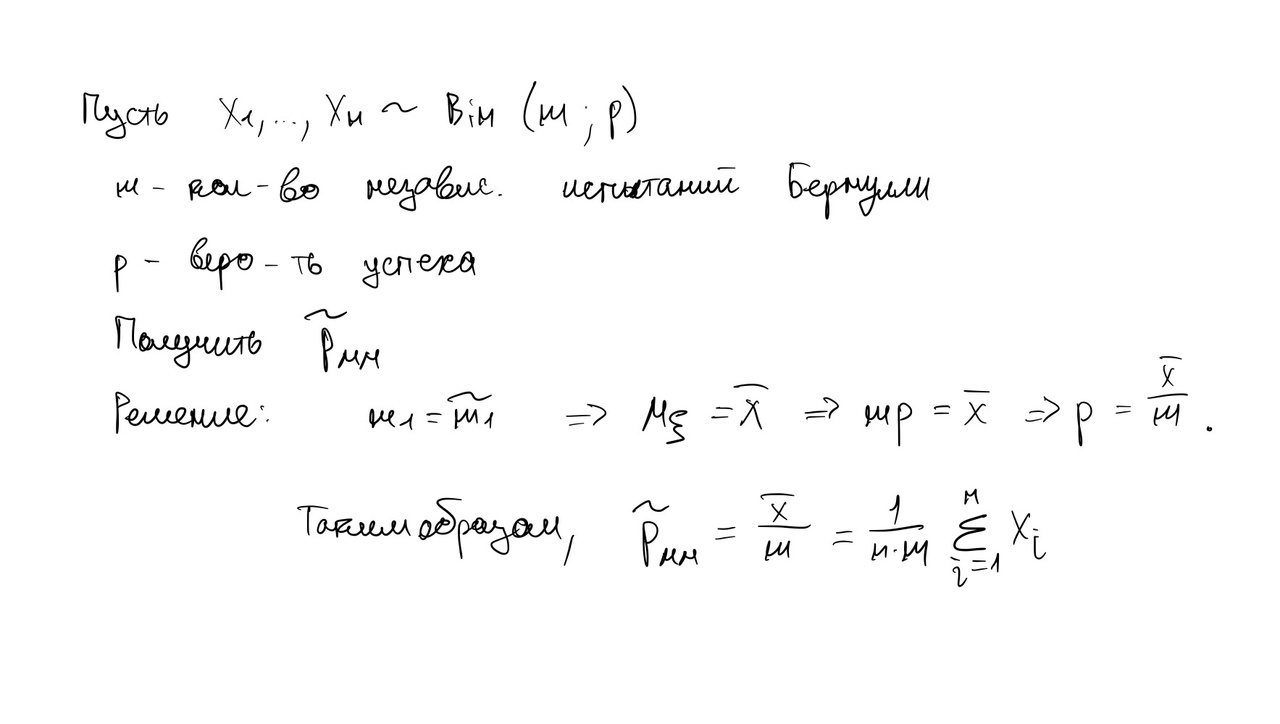 Пусть X₁, ..., Xₙ ~ Bin (m ; p)
m - кол-во независ. испытаний Бернулли
p - веро-ть успеха
Получить p̃ₘₘ
Решение: m₁ = m̃₁ => Mξ = x̄ => mp = x̄ => p = x̄/m .
Таким образом, p̃ₘₘ = x̄/m = 1/(n·m) Σ_{i=1}^{n} Xᵢ